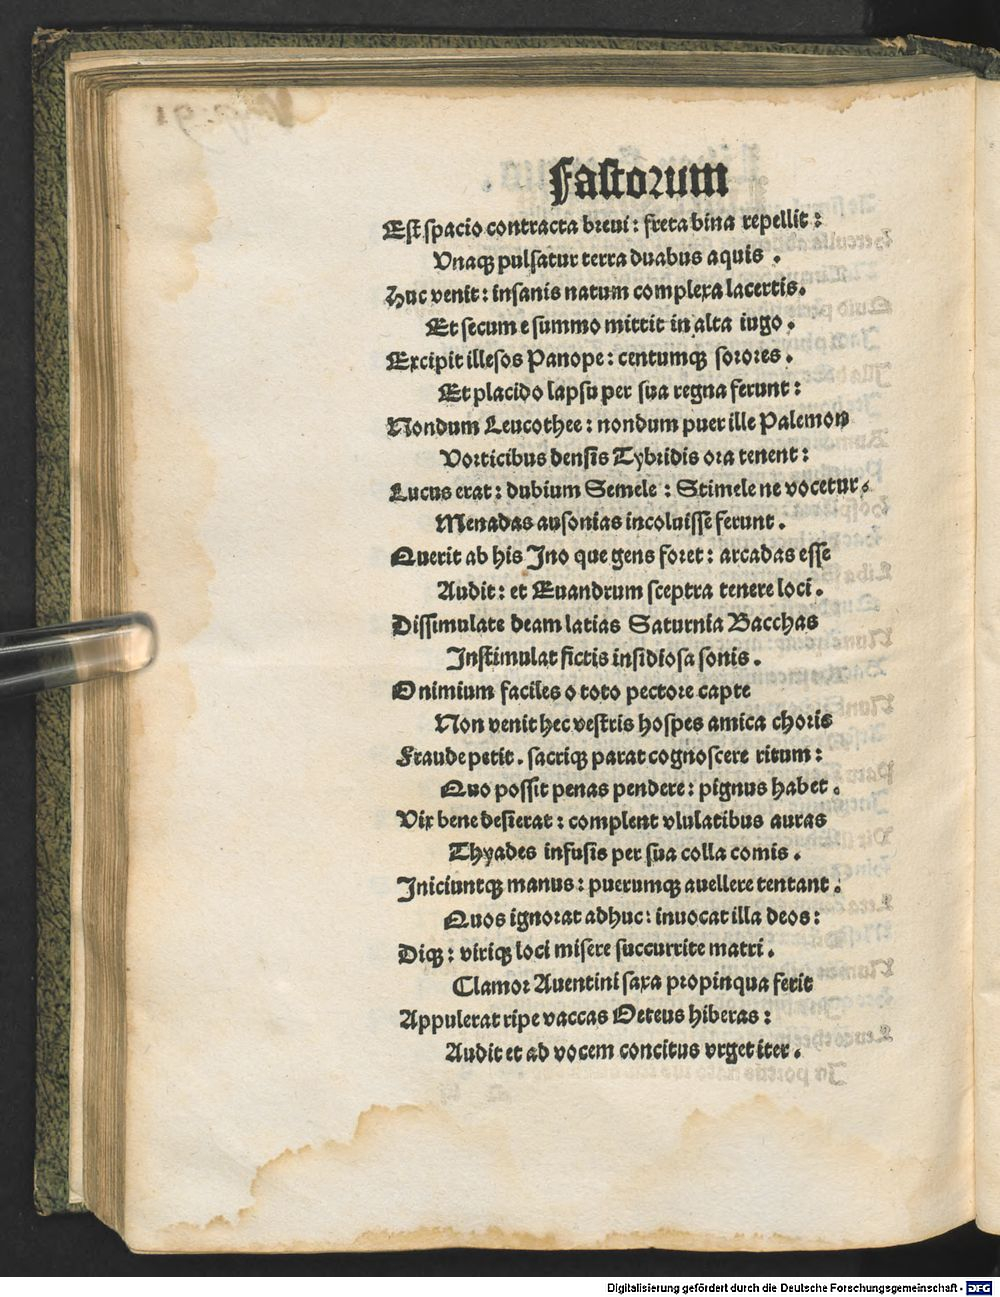 Fastorum
Est spacio contracta breui : freta bina repellit :
Vnaqꝫ pulsatur terra duabus aquis .
Huc venit : insanis natum complexa lacertis.
Et secum e summo mittit in alta iugo .
Excipit illesos Panope : centumqꝫ sorores .
Et placido lapsu per sua regna ferunt :
Nondum Leucothee : nondum puer ille Palemon
Vorticibus densis Tybridis ora tenent :
Lucus erat : dubium Semele : Stimele ne vocetur.
Menadas ausonias incoluisse ferunt .
Querit ab his Ino que gens foret : arcadas esse
Audit : et Euandrum sceptra tenere loci .
Dissimulate deam latias Saturnia Bacchas
Instimulat fictis insidiosa sonis .
O nimium faciles o toto pectore capte
Non venit hec vestris hospes amica choris
Fraude petit . sacriqꝫ parat cognoscere ritum :
Quo possit penas pendere : pignus habet .
Vix bene desierat : complent vlulatibus auras
Thyades infusis per sua colla comis .
Iniciuntqꝫ manus : puerumqꝫ auellere tentant .
Quos ignorat adhuc : inuocat illa deos :
Diqꝫ : viriqꝫ loci misere succurrite matri .
Clamor Auentini saxa propinqua ferit
Appulerat ripe vaccas Oeteus hiberas :
Audit et ad vocem concitus vrget iter .
Digitalisierung gefördert durch die Deutsche Forschungsgemeinschaft - DFG